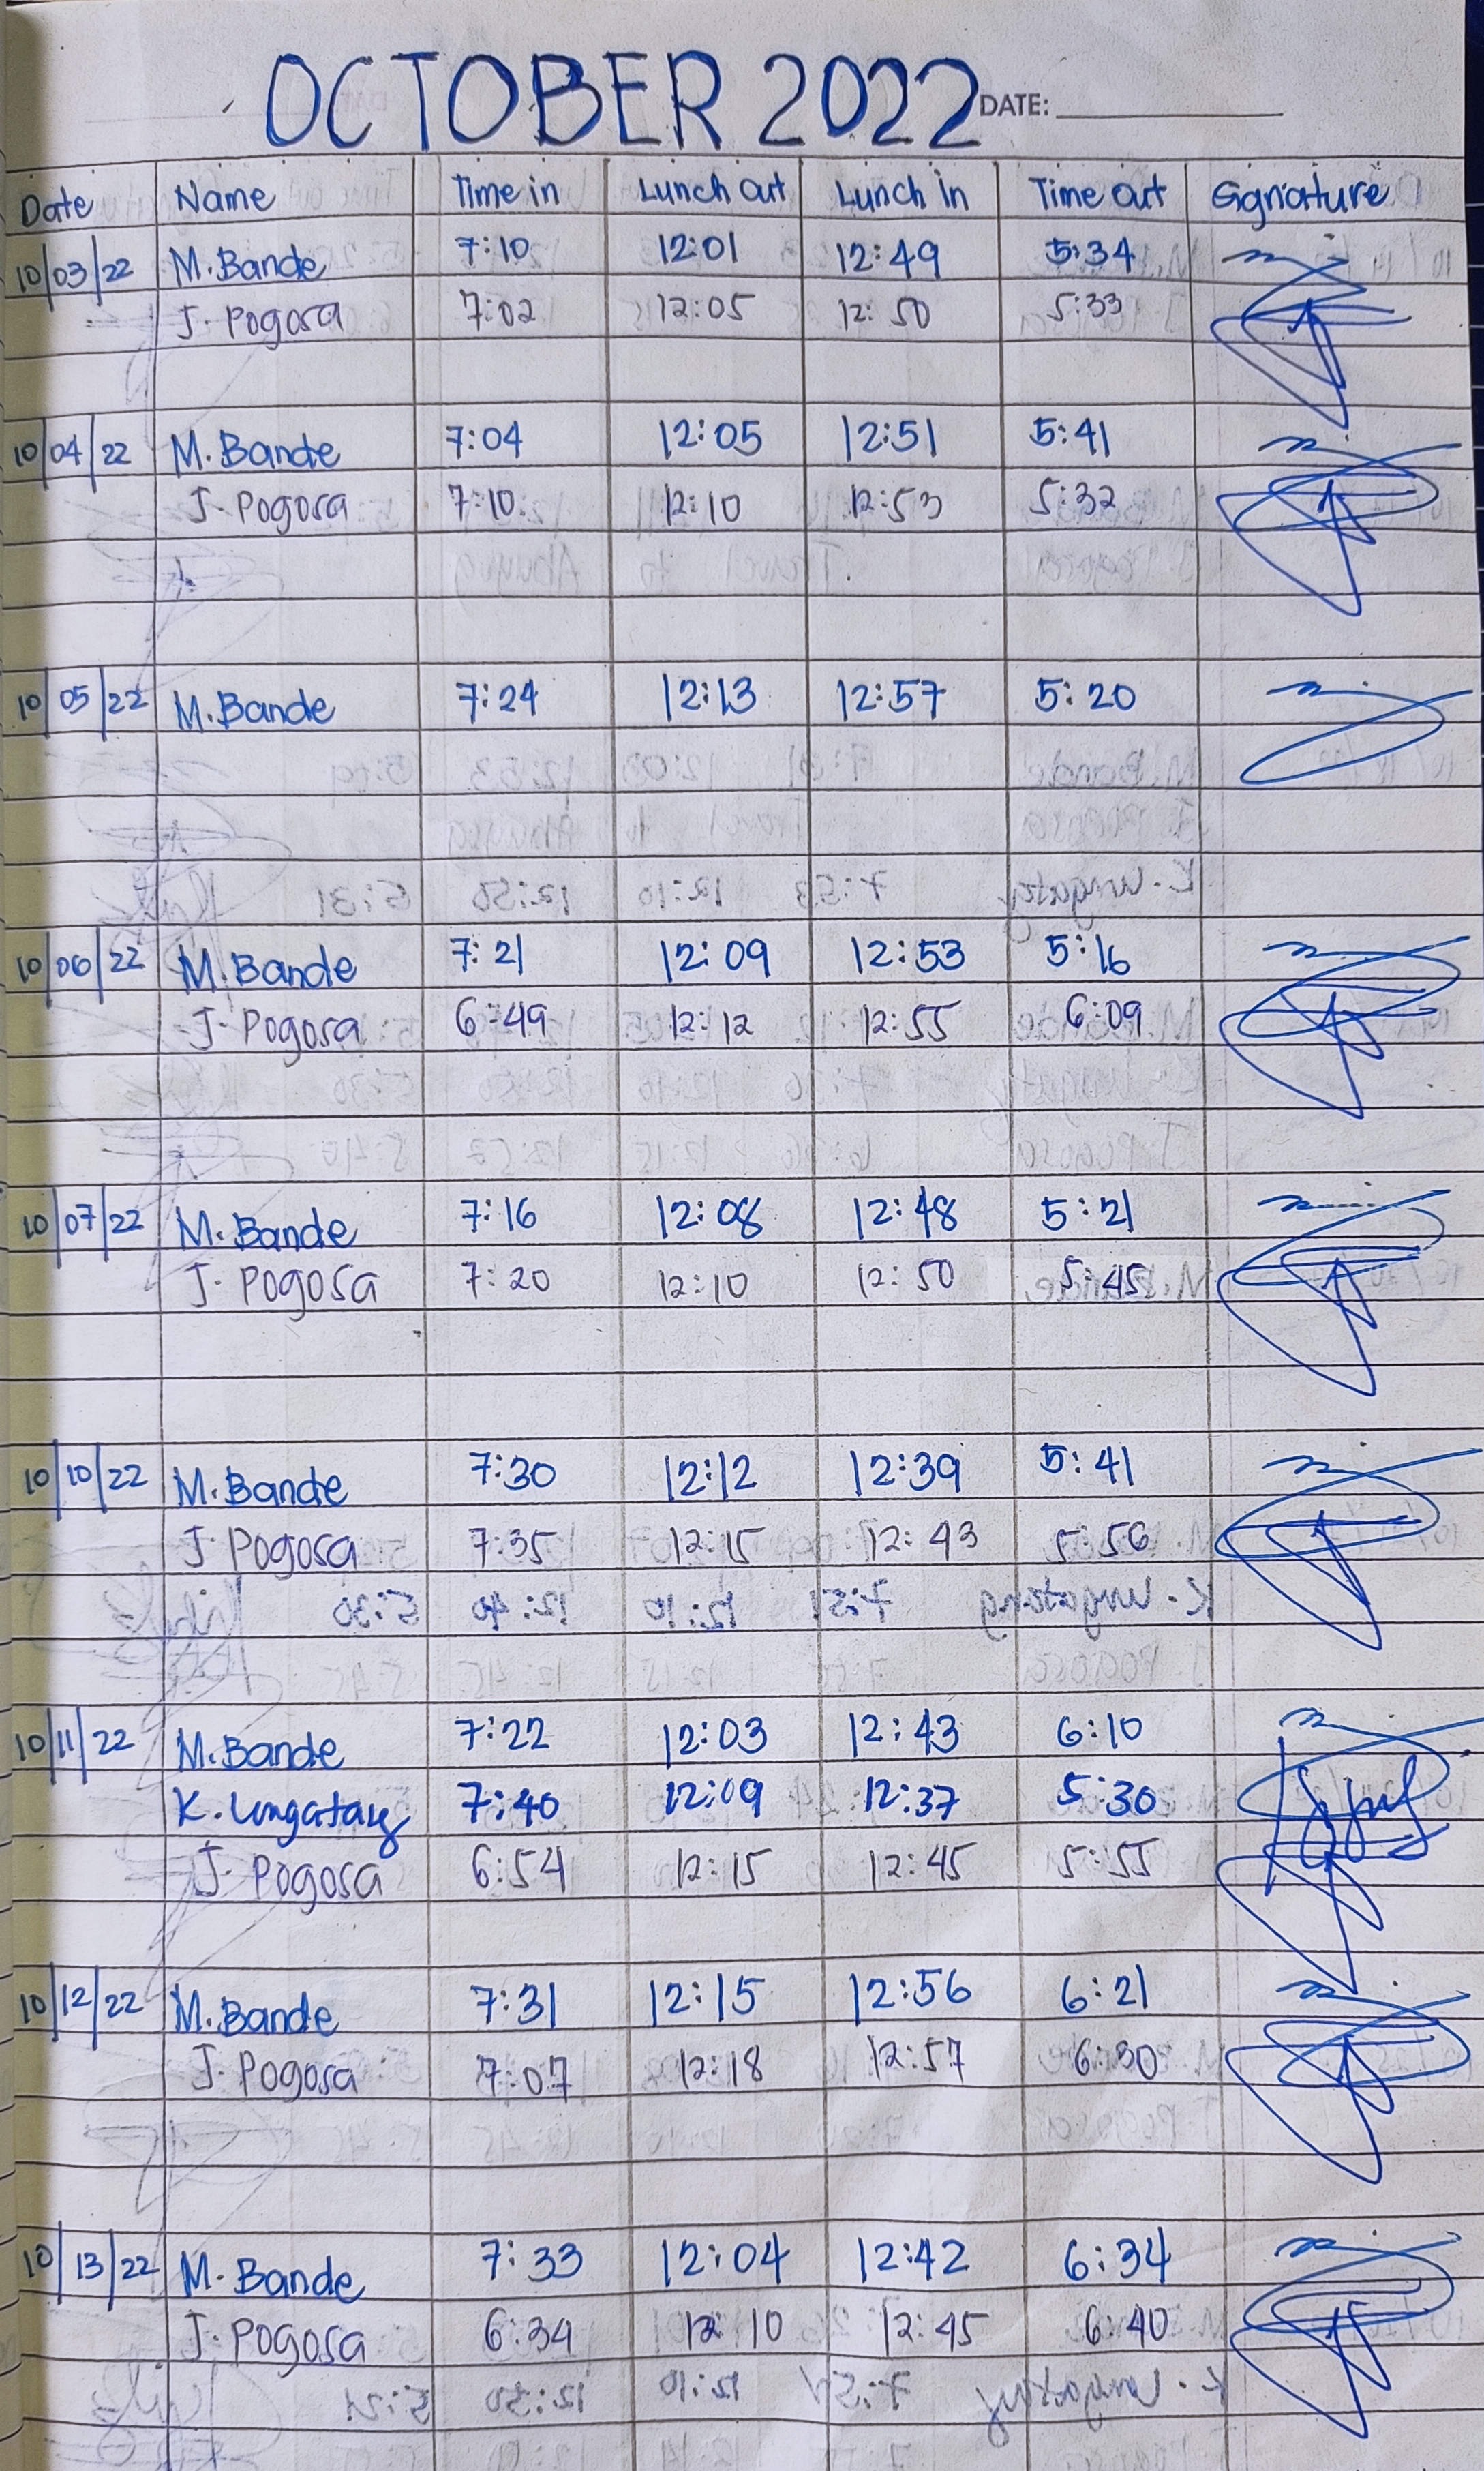 OCTOBER 2022 DATE:
Date Name Time in Lunch out Lunch in Time out Signature
10/03/22 M. Bande 7:10 12:01 12:49 5:34
J. Pogosa 7:02 12:05 12:50 5:33
10/04/22 M. Bande 7:04 12:05 12:51 5:41
J. Pogosa 7:10 12:10 12:53 5:32
10/05/22 M. Bande 7:24 12:13 12:57 5:20
10/06/22 M. Bande 7:21 12:09 12:53 5:16
J. Pogosa 6:49 12:12 12:55 6:09
10/07/22 M. Bande 7:16 12:08 12:48 5:21
J. Pogosa 7:20 12:10 12:50 5:45
10/10/22 M. Bande 7:30 12:12 12:39 5:41
J. Pogosa 7:35 12:15 12:43 5:56
10/11/22 M. Bande 7:22 12:03 12:43 6:10
K. Ungatay 7:40 12:09 12:37 5:30
J. Pogosa 6:54 12:15 12:45 5:55
10/12/22 M. Bande 7:31 12:15 12:56 6:21
J. Pogosa 7:07 12:18 12:57 6:30
10/13/22 M. Bande 7:33 12:04 12:42 6:34
J. Pogosa 6:34 12:10 12:45 6:40